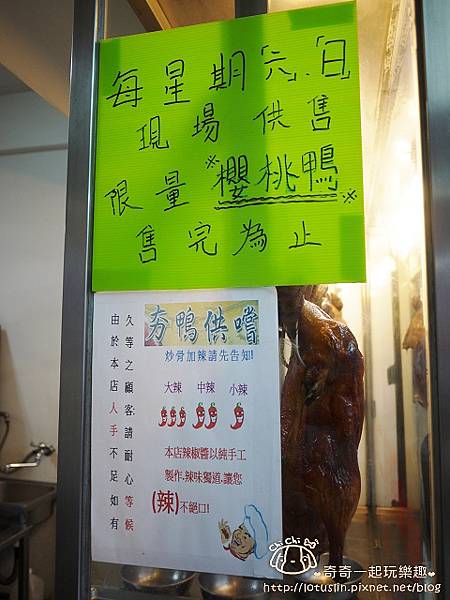 每星期「六」、「日」
現場供售
限量※櫻桃鴨※
售完為止
夯鴨供嚐
炒骨加辣請先告知!
大辣 中辣 小辣
本店辣椒醬以純手工
製作.辣味獨道.讓您
(辣)不絕口!
由於本店人手不足如有
久等之顧客請耐心等候
Chi Chi
♥奇奇一起玩樂趣♥
http://lotuslin.pixnet.net/blog